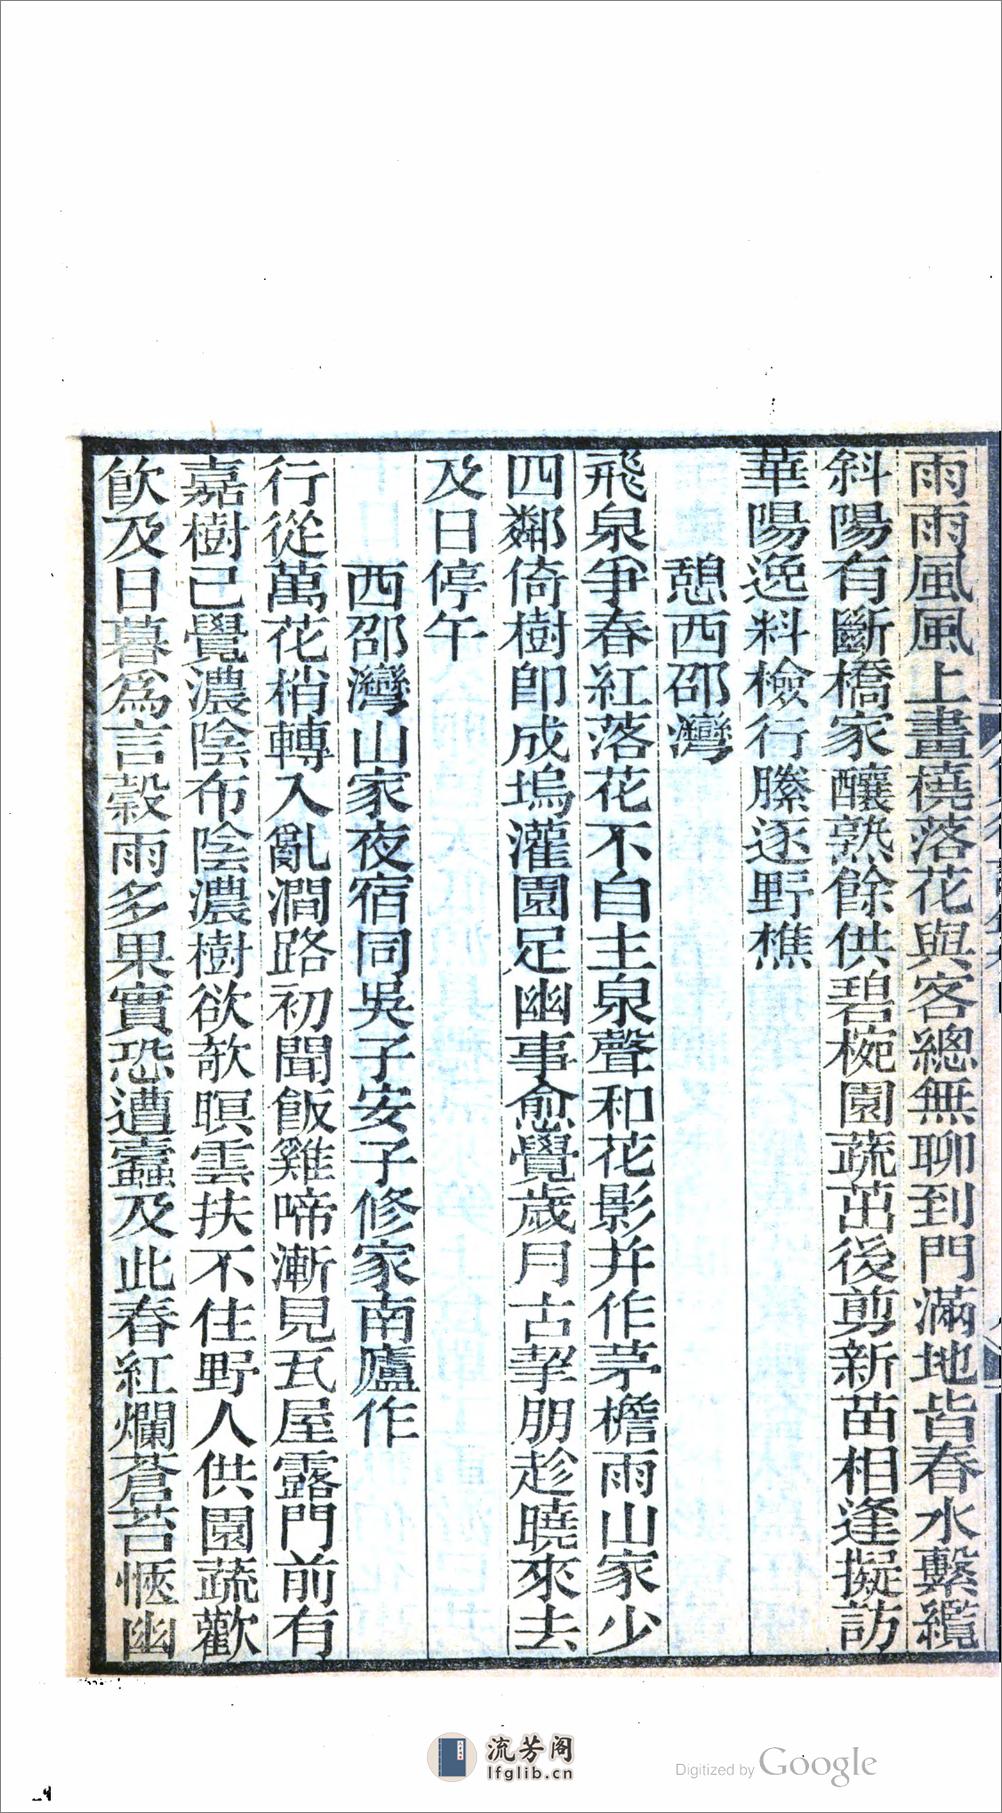 雨雨風風上畫橈落花與客總無聊到門滿地皆春水繫纜
斜陽有斷橋家釀熟餘供碧椀園蔬茁後剪新苗相逢擬訪
華陽逸料檢行縢逐野樵
憩西邵灣
飛泉爭春紅落花不自主泉聲和花影并作茅檐雨山家少
四鄰倚樹即成塢灌園足幽事愈覺歲月古挈朋趁曉來去
及日停午
西邵灣山家夜宿同吳子安子修家南廬作
行從萬花梢轉入亂澗路初聞飯雞啼漸見瓦屋露門前有
嘉樹已覺濃陰布陰濃樹欲欹暝雲扶不住野人供園蔬歡
飲及日暮為言穀雨多果實恐遭蠹及此春紅爛蒼苔愜幽
流芳阁
lfglib.cn
Digitized by Google